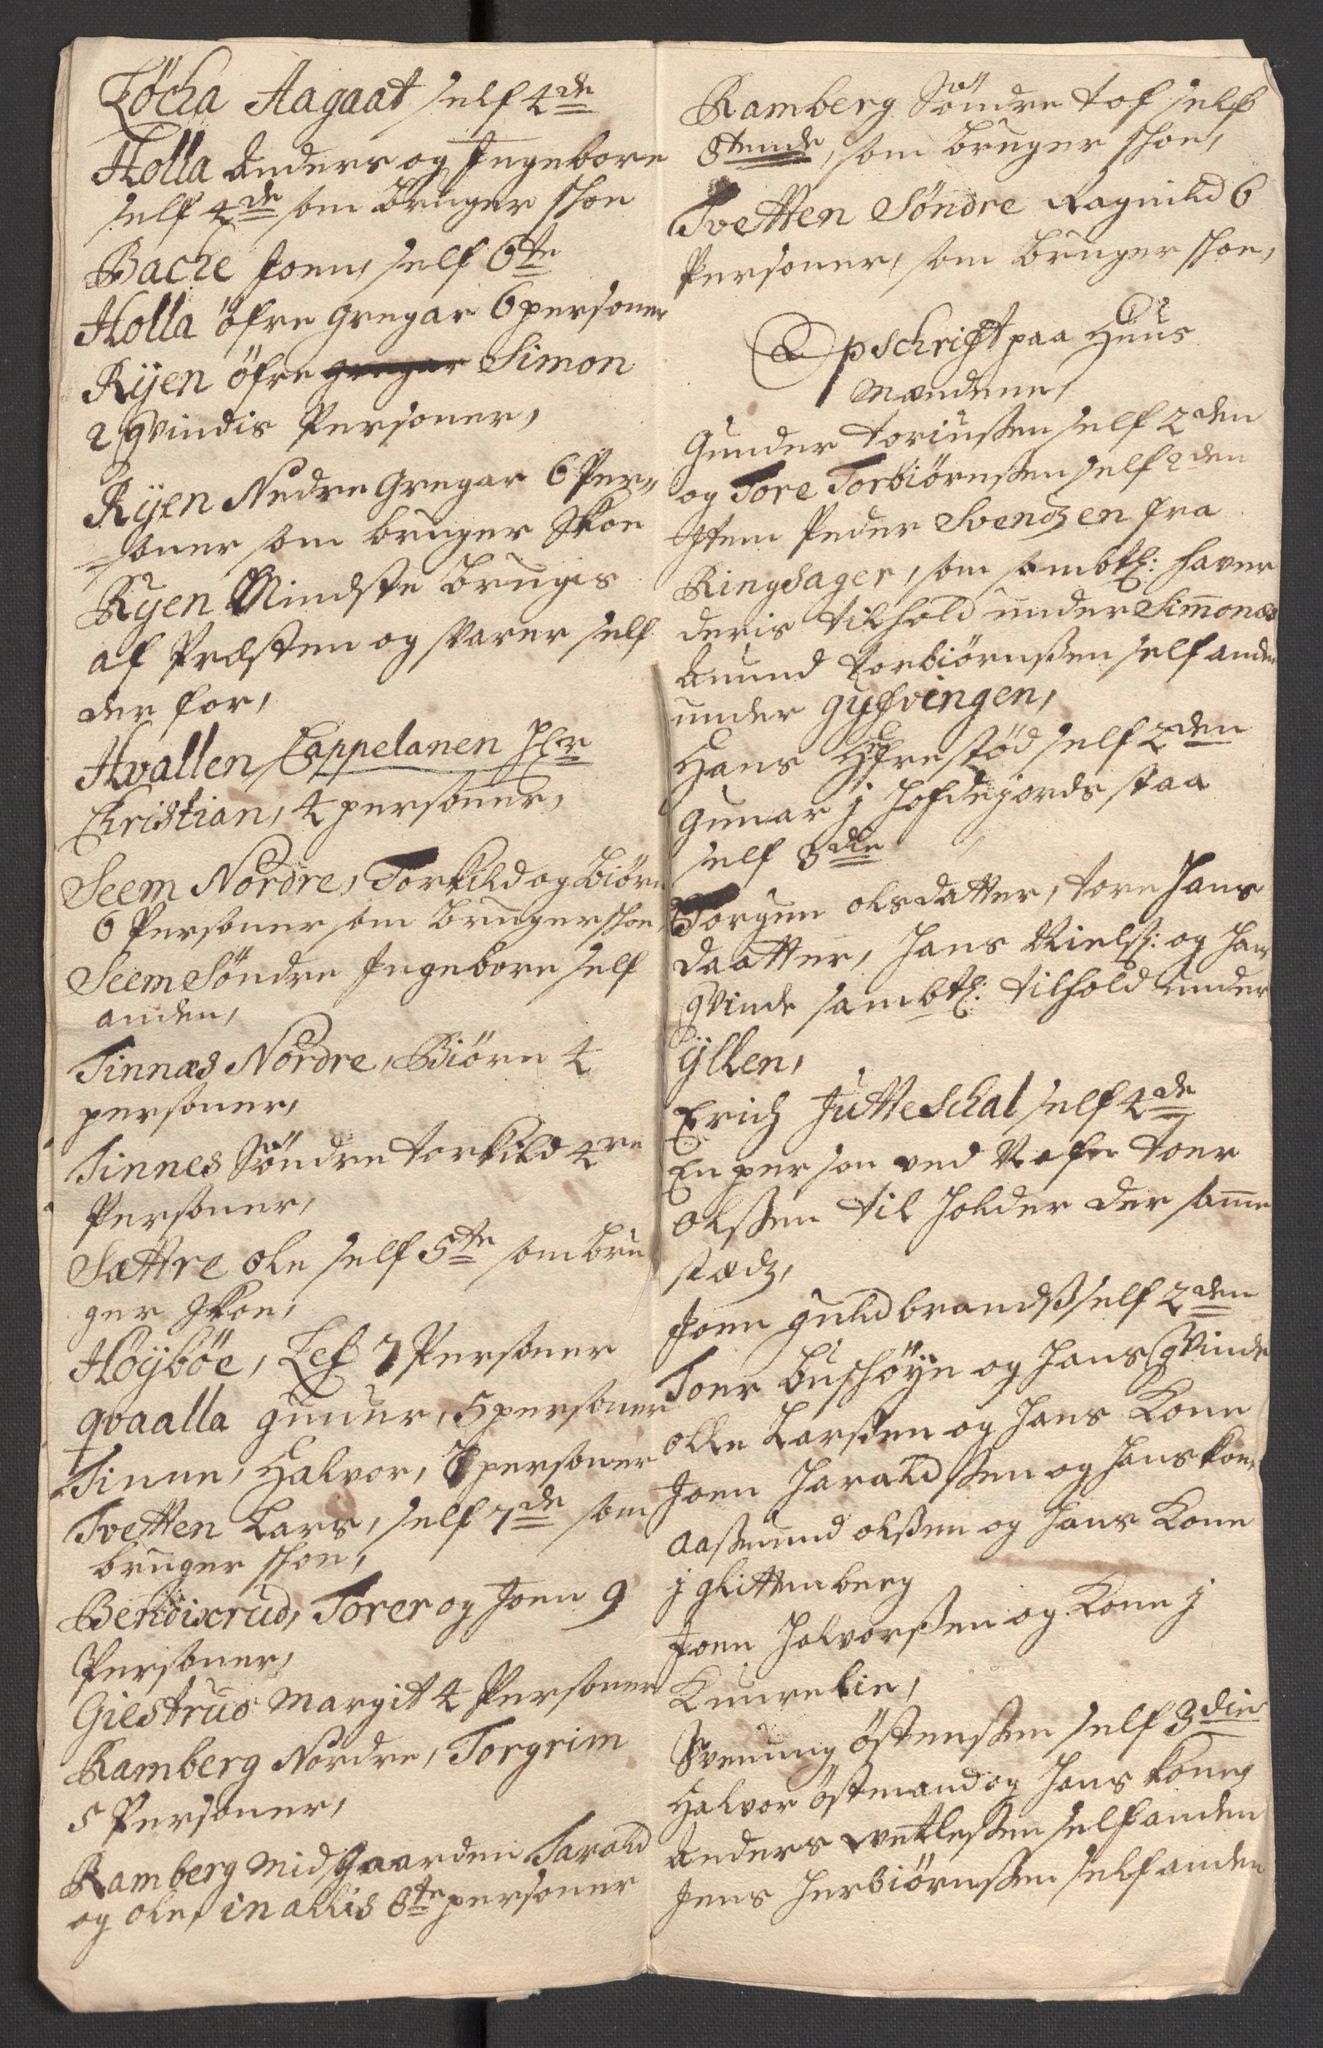 Löcka Aagaat self 4de
Holla Anders og Ingebore
self 4de som bruger skoe
Backe Joen, self 6te
Holla öfre Gregar 6 personer
Rijen öfre gregar Simon
2 qvindis Personer,
Rijen Nedre Gregar 6 Per-
soner som bruger Skoe
Rijen Mindste brugis
af Præsten og svarer self
der for,
Hvallen, Cappelanen Hr
Christian, 4 personer,
Seem Nordre, Torkild og Biörn
6 Personer som bruger skoe,
Seem Söndre Ingebore self
anden,
Tinnæs Nordre, Biörn 4
personer,
Tinnes Söndre torkild 4re
Personer,
Sættre ole self 5te som bru
ger Skoe,
Höybóe, Lef 7 Personer
qvaalla gunur, 5 personer
Tinne, Halvor, 6 personer
Tvetten Lars, self 7de som
bruger skoe,
Bendixrud, Torer og Joen 9
Personer,
Gielstrud Margit 4 Personer
Ramberg Nordre, Torgrim
5 Personer,
Ramberg Midgaarden Tarald
og ole, in allis 8te personer
Ramberg Söndre tof self
Ottende, som bruger skoe,
Tvetten Söndre Ragnild 6
Personer, som bruger skoe,
Opschrift paa Huus
Mændene,
Gunder toriussen self 2den
og Tore Torbiörnssen self 2den
Item Peder Svendzen fra
Ringsager, som sambtl: haver
deris tilhold under Simonæs
Amund Torbiörnssen self anden
under gyfvingen,
Hans Hfrestöd self 2den
Gunar j Hofdejords staa
self 3die
Torgun olsdatter, tore Hans
daatter, Hans Nielss: og Hans
qvinde sambtl: tilhold under
Yllen,
Erich Jutteschal self 4de
En person ved Nafn toer
olssen til holder der samme
stædz,
Joen guldbrandss self 2den
Toer bushöye og Hans qvinde
olle Larssen og Hans Kone
Joen Haraldssen og Hans kone,
aassmund olssen og Hans Kone
j glittenberg
Joen Halvorssen og Kone j
Knurelie,
Svenung östenssen self 3die
Halvor östmand og Hans kone,
Anders wetlessen self anden
Jens Herbiörnssen self anden